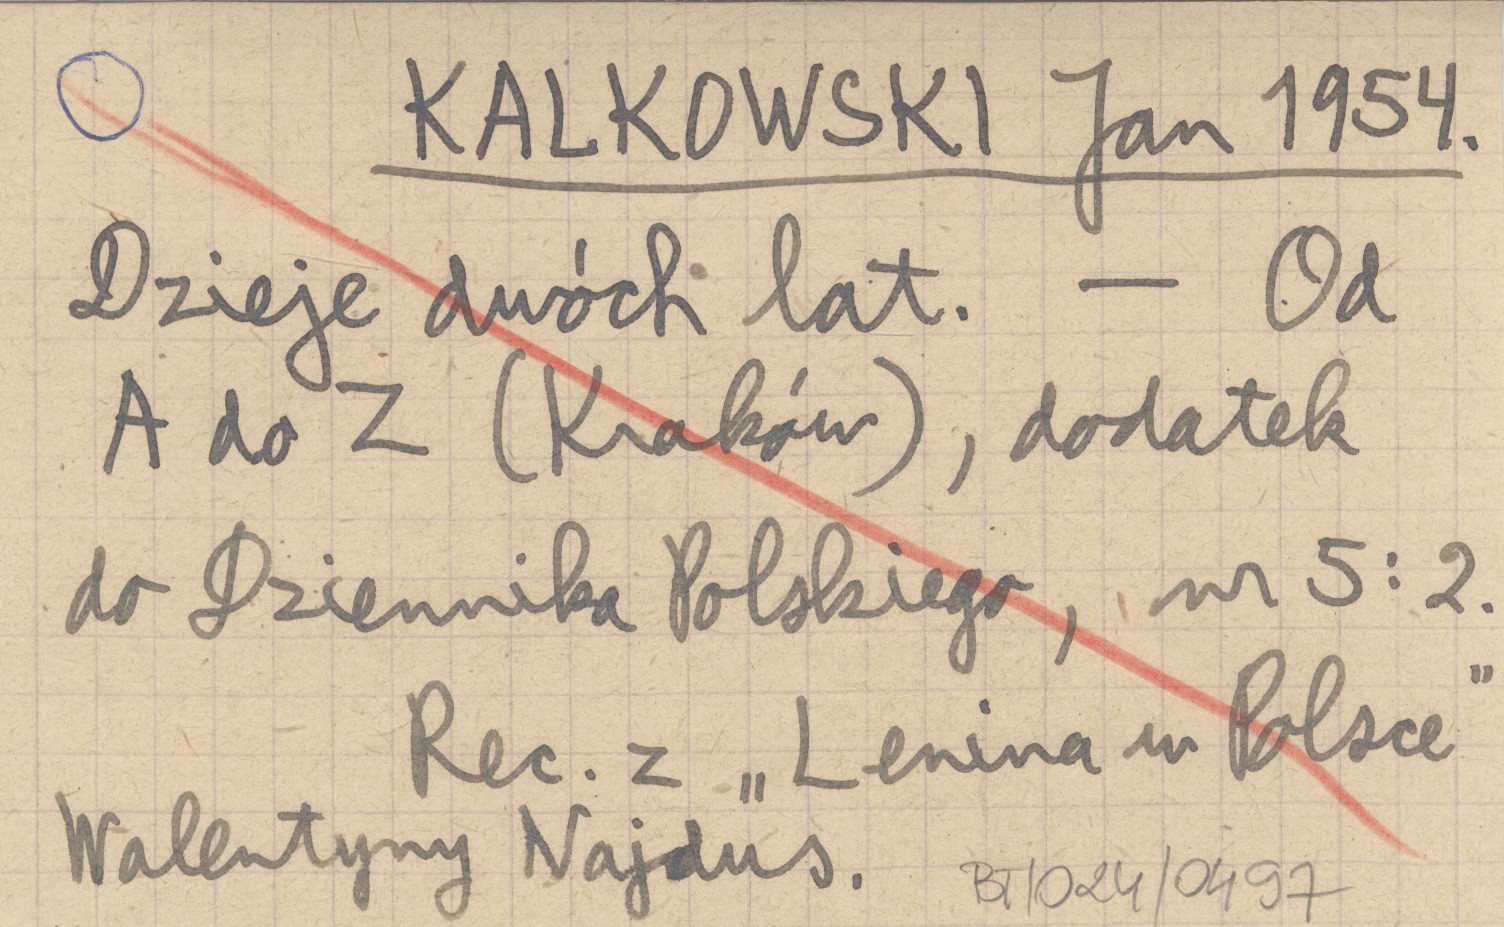 KALKOWSKI Jan 1954.
Dzieje dwóch lat. — Od
A do Z (Kraków), dodatek
do Dziennika Polskiego, nr 5:2.
Rec. z „Lenina w Polsce”
Walentyny Najdus.
BT/024/0497